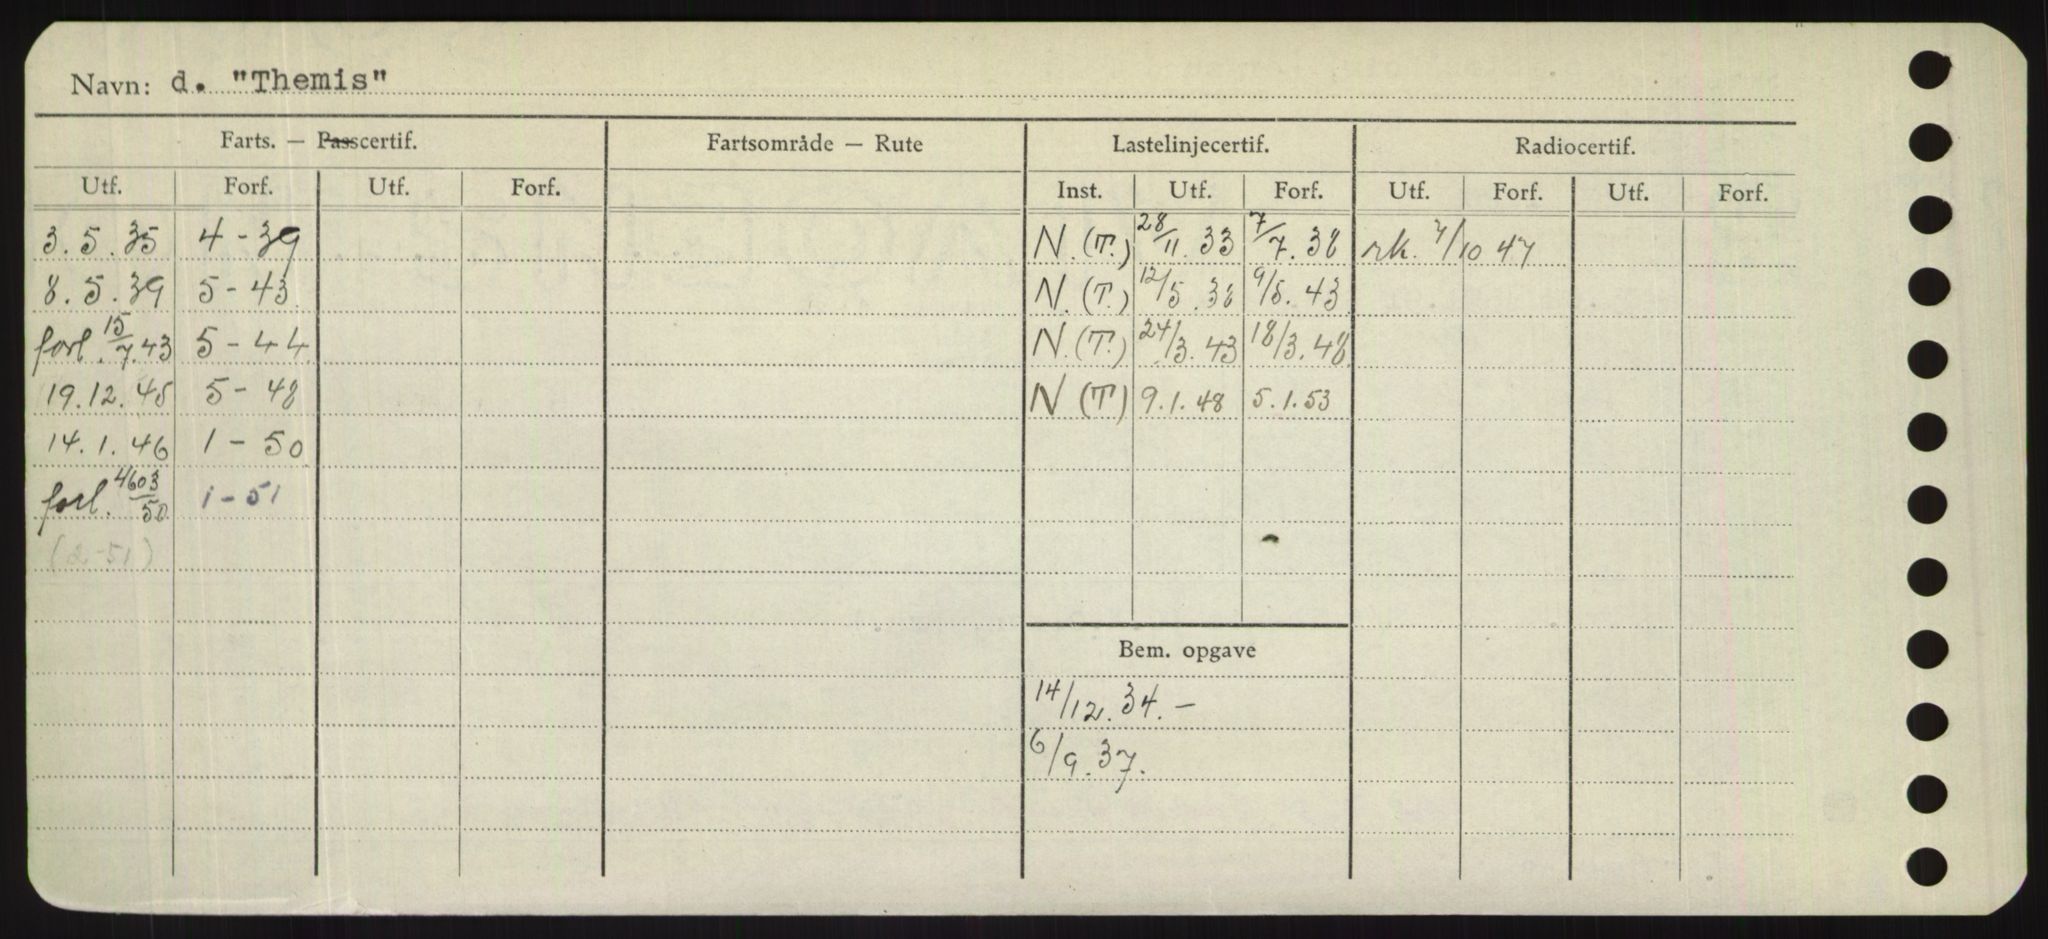 Navn: d. "Themis"
Farts. — Passcertif. Fartsområde — Rute Lastelinjecertif. Radiocertif.
Utf. Forf. Utf. Forf. Inst. Utf. Forf. Utf. Forf. Utf. Forf.
3.5.35 4-39 N.(T.) 28/11.33 7/7.38 rk. 7/10 47
8.5.39 5-43 N.(T.) 12/5.38 9/5.43
forl. 15/7.43 5-44 N.(T.) 24/3.43 18/3.48
19.12.45 5-48 N (T) 9.1.48 5.1.53
14.1.46 1-50
forl. 4603/50 1-51
(2-51)
Bem. opgave
14/12.34.-
6/9.37.